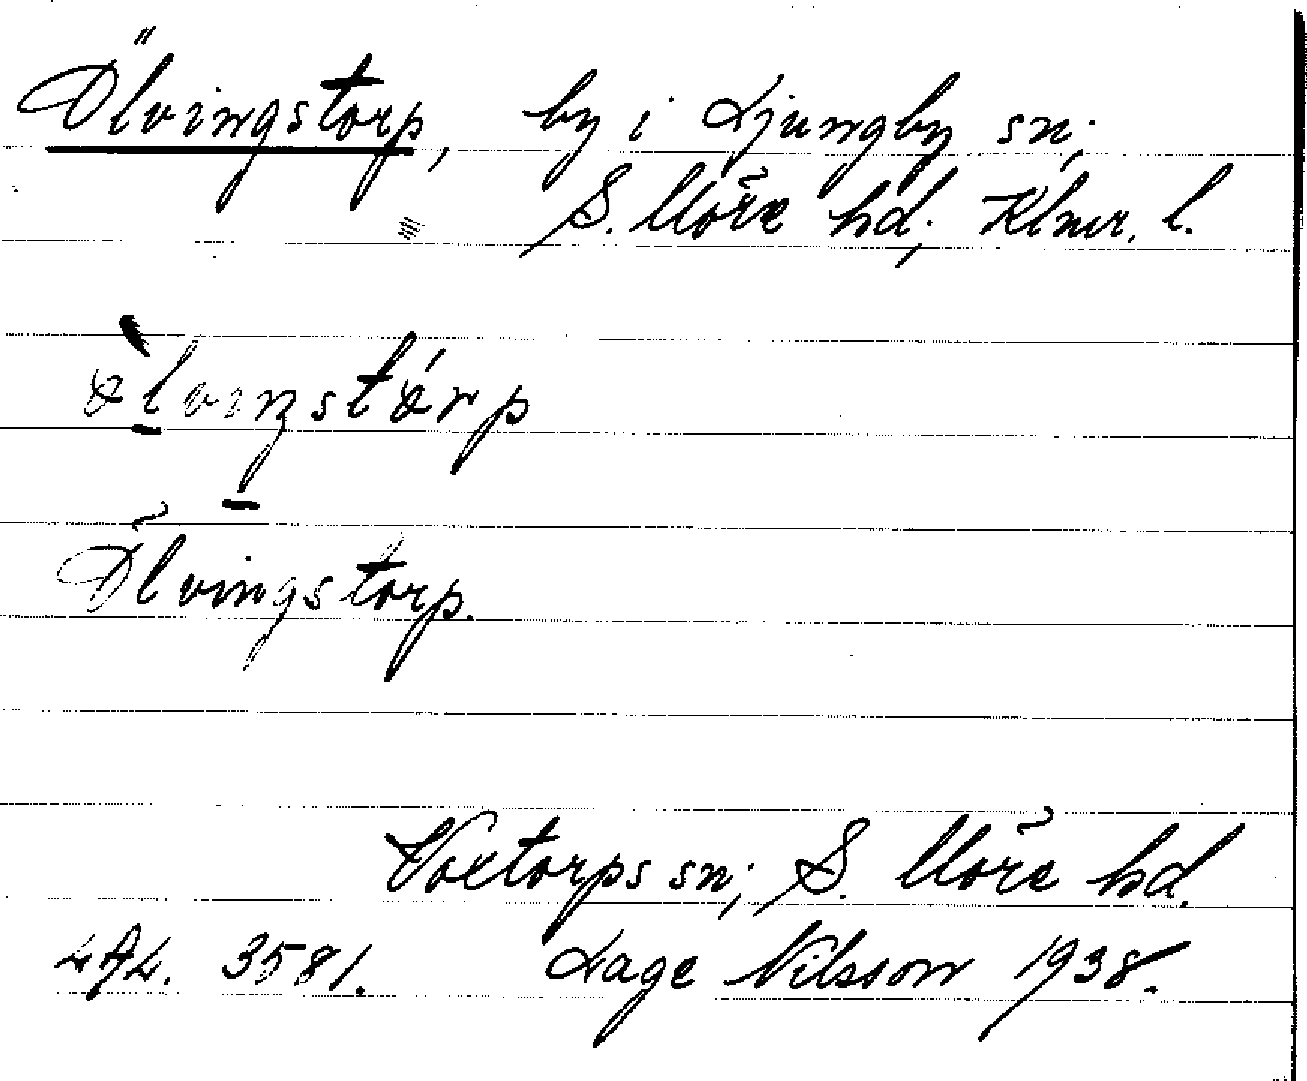 Ölvingstorp, by i Ljungby sn;
S. Möre hd; Klmr. l.
Ölvingstorp.
Voxtorps sn; S. Möre hd.
3581. Lage Nilsson 1938.